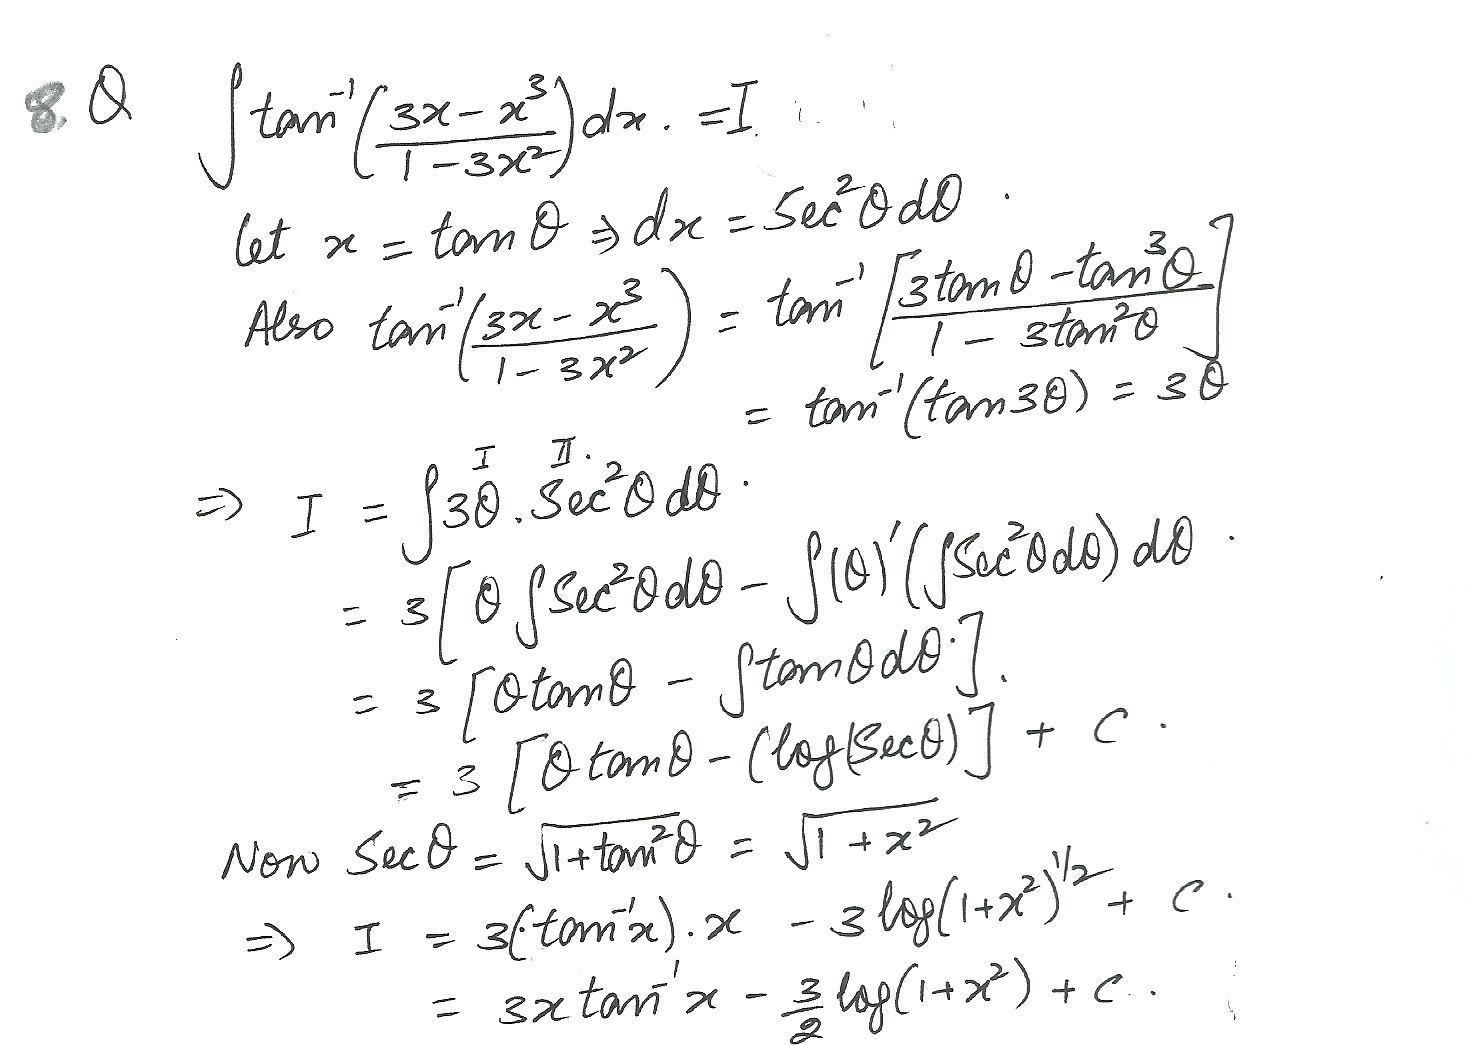 8. Q ∫ tan⁻¹((3x − x³)/(1 − 3x²)) dx. = I
let x = tan θ ⇒ dx = Sec²θ dθ.
Also tan⁻¹((3x − x³)/(1 − 3x²)) = tan⁻¹[(3tan θ − tan³θ)/(1 − 3tan²θ)]
= tan⁻¹(tan 3θ) = 3θ
I II.
⇒ I = ∫3θ. Sec²θ dθ.
= 3[θ ∫Sec²θ dθ − ∫(θ)′(∫Sec²θ dθ) dθ.
= 3[θ tan θ − ∫tan θ dθ.].
= 3[θ tan θ − (log(Sec θ)] + C.
Now Sec θ = √(1+tan²θ) = √(1 + x²)
⇒ I = 3(tan⁻¹x). x − 3 log(1+x²)^(1/2) + C.
= 3x tan⁻¹x − 3/2 log(1+x²) + C..